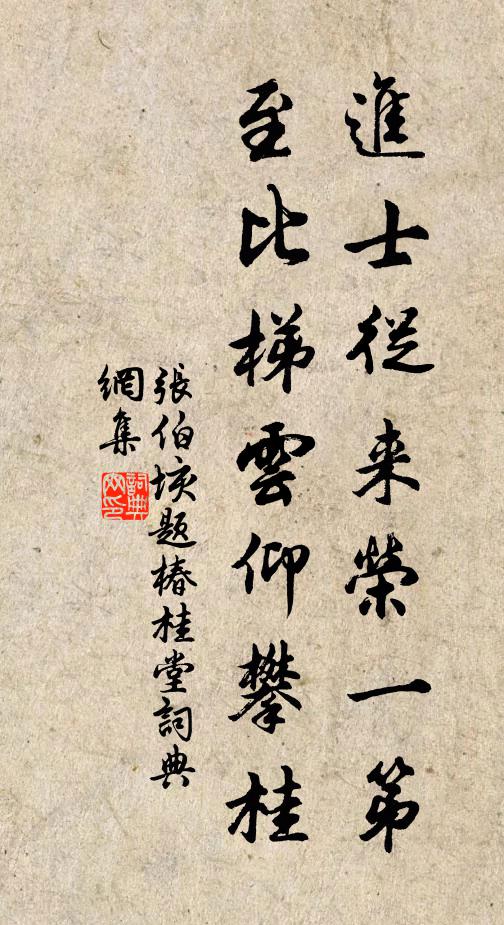 進士從来榮一第
至比梯雲仰攀桂
張伯垓題椿桂堂詞典
網集
詞典
网印